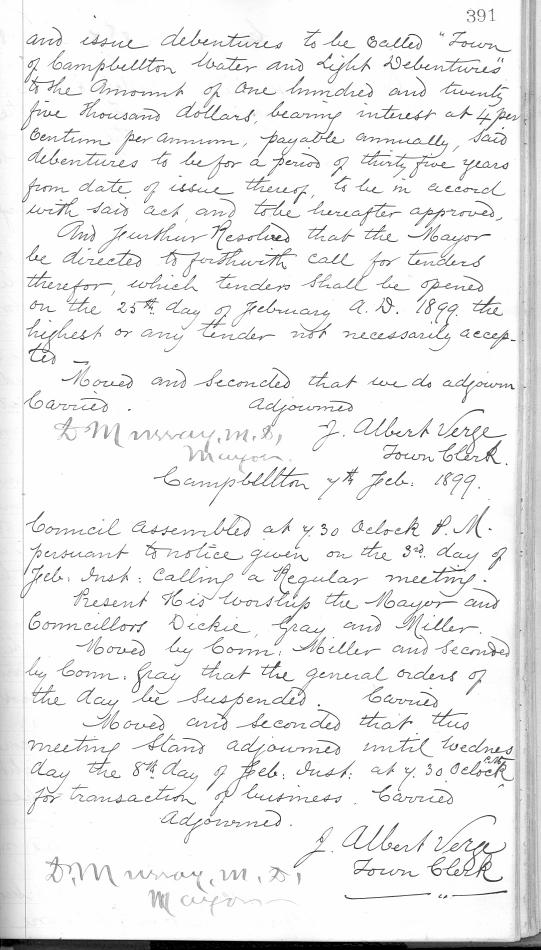 391
and issue debentures to be Called "Town
of Campbellton Water and Light Debentures"
to the Amount of One hundred and twenty
five thousand dollars, bearing interest at 4 per
Centum per annum, payable annually, said
debentures to be for a period of thirty five years
from date of issue thereof, to be in accord
with said act, and to be hereafter approved,
And furthur Resolved that the Mayor
be directed to forthwith call for tenders
therefor, which tenders shall be opened
on the 25th day of February A.D. 1899. the
highest or any tender not necessarily accep-
ted
Moved and Seconded that we do adjourn
Carried. Adjourned
D Murray, M.D, J. Albert Verge
Mayor. Town Clerk.
Campbellton 7th Feb. 1899.
Council Assembled at 7.30 Oclock P.M.
pursuant to notice given on the 3rd day of
Feb. Inst: Calling a Regular meeting.
Present His Worship the Mayor and
Councillors Dickie, Gray and Miller.
Moved by Coun: Miller and Seconded
by Coun. Gray that the general orders of
the day be Suspended. Carried
Moved and Seconded that this
meeting Stand adjourned until Wednes
day the 8th day of Feb: Inst: at 7.30 Oclock
for transaction of business. Carried
Adjourned.
J. Albert Verge
D. Murray, M.D, Town Clerk
Mayor